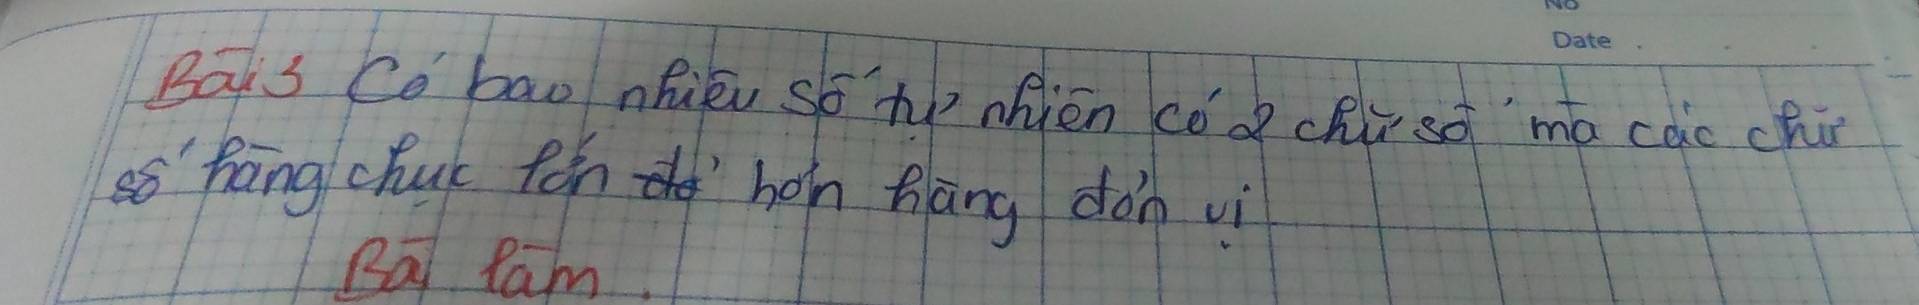 No
Date
Bài 3 Có bao nhiêu số tự nhiên có 2 chữ số mà các chữ
số hàng chục lớn hơn hàng đơn vị
Bài làm.